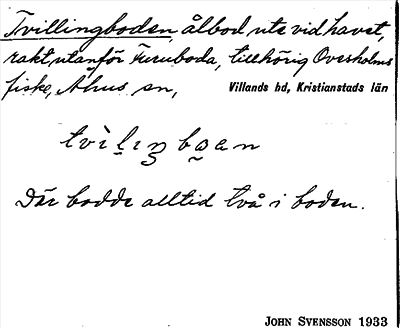 Tvillingboden, ålbod ute vid havet,
rakt utanför Furuboda, tillhörig Overholms
fiske, Åhus sn, Villands hd, Kristianstads län
tvìlıŋboan
Där bodde alltid två i boden.
JOHN SVENSSON 1933